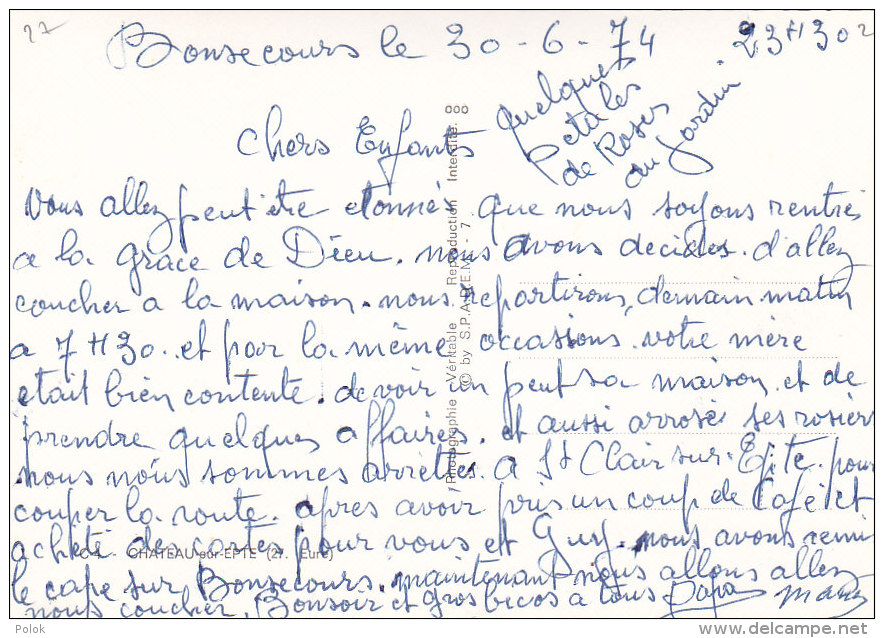 27
Bonsecours le 30-6-74 23H30
Quelques
Petales
de Roses
du Jardin
Chers Enfants
Vous allez peut etre etonnés que nous soyons rentrés
a la grace de Dieu. nous avons decidés d'allez
coucher a la maison. nous repartirons, demain matin
a 7H30. et pour la même occasions. votre mère
etait bien contente. de voir un peut sa maison. et de
prendre quelques affaires. et aussi arrosé ses rosiers
nous nous sommes arrêttés. a St Clair sur-Epte. pour
couper la route. apres avoir pris un coup de Café et
acheté des cartes pour vous et Guy. nous avons remis
le cape sur Bonsecours. maintenant nous allons allez
nous coucher. Bonsoir et gros bicos a tous Papa
Photographie Véritable - Reproduction Interdite.
© by S.P.A.D.E.M. - 7
CHATEAU-sur-EPTE (27. Eure)
Delcampe.net
Polok